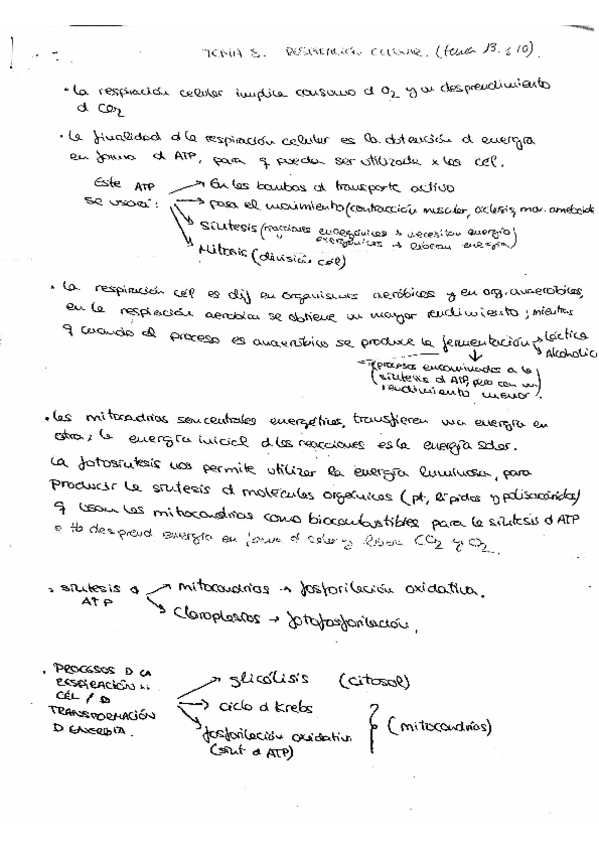 TEMA 8. RESPIRACIÓN CELULAR. (tema 13. y 10).
• La respiración celular implica consumo d O2 y un desprendimiento
d CO2
• La finalidad d la respiración celular es la obtención d energía
en forma d ATP, para q puedan ser utilizada x las cél.
Este ATP → En las bombas d transporte activo
se usará: → para el movimiento (contracción muscular, ciclosis, mov. ameboide
→ Síntesis (reacciones endergónicas → necesitan energía
exergónicas → liberan energía)
→ Mitosis (división cél)
• La respiración cél es dif en organismos aeróbicos y en org. anaerobios,
en la respiración aerobia se obtiene un mayor rendimiento; mientras
q cuando el proceso es anaeróbico se produce la fermentación → Láctica
→ Alcohólica
→ procesos encaminados a la
(síntesis d ATP, pero con un
rendimiento menor.
• Las mitocondrias son centrales energéticas, transfieren una energía en
otra; la energía inicial d las reacciones es la energía solar.
La fotosíntesis nos permite utilizar la energía luminosa, para
producir la síntesis d moléculas orgánicas (pt, lípidos y polisacáridos)
q usan las mitocondrias como biocombustibles para la síntesis d ATP
energía en forma d calor y liberan CO2 y O2.
• síntesis d → mitocondrias → fosforilación oxidativa.
ATP → Cloroplastos → fotofosforilación.
• PROCESOS D LA
RESPIRACIÓN
CÉL / D
TRANSFORMACIÓN
D ENERGÍA.
→ glicólisis (citosol)
→ ciclo d Krebs
→ fosforilación oxidativa
(sínt d ATP)
(mitocondrias)